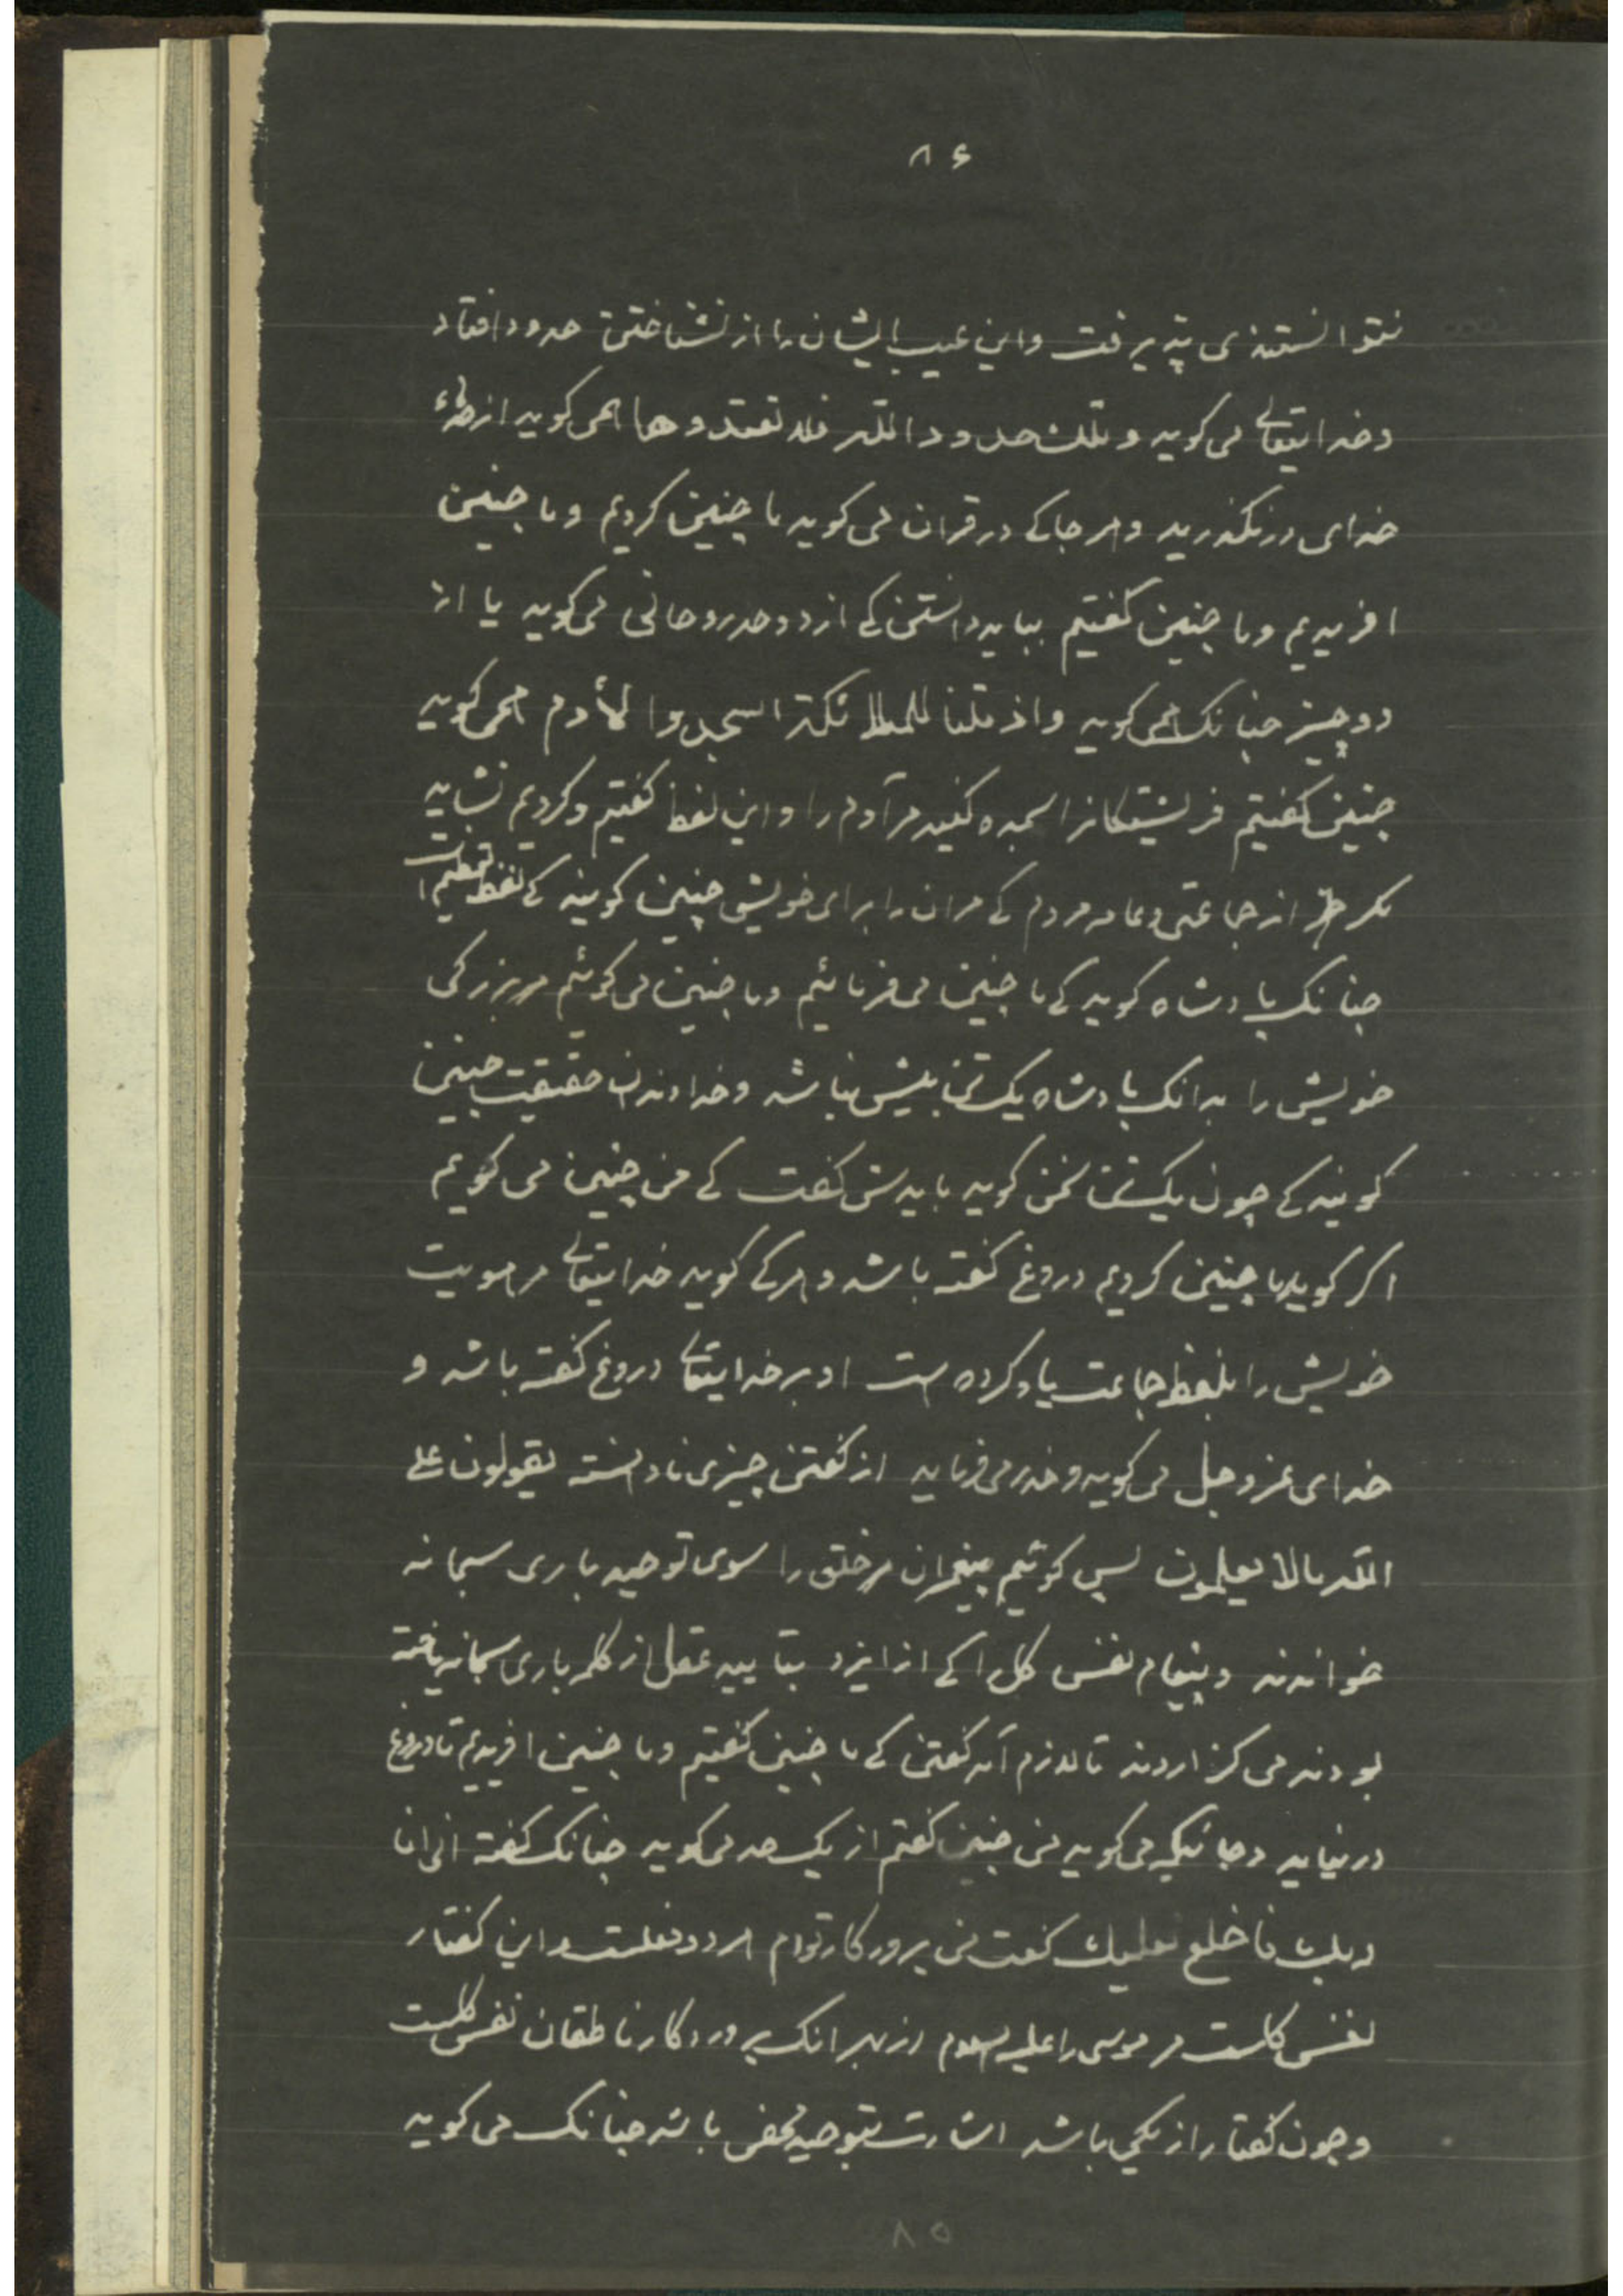 ۸۶
نتوانستندی پذیرفت و این عیب ایشان را از نشناختن حدود افتاد
و خدایتعالی می کوید و تلک حدود الله فلا تعتدوها همی کوید از حدهاء
خدای درنکذرید و هر جا کی در قران می کوید ما چنین کردیم و ما چنین
افریدیم و ما چنین کفتیم بباید دانستن کی از دو حد روحانی می کوید یا از
دو چیز چنانک همی کوید و اذ قلنا للملائکة اسجدوا لأدم همی کوید
چنین کفتیم فرشتکانرا سجده کنید مر آدم را و این لفظ کفتیم و کردیم نشاید
مکر جز از جماعتی و عامه مردم کی مران را برای خویش چنین کویند کی لفظ تعظیم است
چنانک پادشاه کوید کی ما چنین می فرمائیم و ما چنین می کوئیم مر بزرکی
خویش را بدانک پادشاه یک تن بیش نباشد و خداوندان حقیقت چنین
کویند کی چون یک تن سخن کوید بایدش کفت کی من چنین می کویم
اکر کوید ما چنین کردیم دروغ کفته باشد و هر کی کوید خدایتعالی مر هویت
خویش را بلفظ جماعت یاد کرده است او بر خدایتعالی دروغ کفته باشد و
خدای عز و جل می کوید و حذر می فرماید از کفتن چیزی نادانسته یقولون علی
الله مالا یعلمون پس کوئیم پیغمبران مر خلق را سوی توحید باری سبحانه
خواندند و پیغام نفس کل را کی از ایزد بتایید عقل از کلمه باری سبحانه یافته
بودند می کزاردند تا لازم آمد کفتن کی ما چنین کفتیم و ما چنین افریدیم تا دروغ
درنیاید و جائیکه می کوید من چنین کفتم از یک حد می کوید چنانک کفته انی انا
ربک فاخلع نعلیک کفت من پروردکار توام هر دو نعلت و این کفتار
نفس کلست مر موسی را علیه السلام از بهر انک پروردکار ناطقان نفس کلست
و چون کفتار از یکی باشد اشارت بتوحید محض باشد چنانک می کوید
۸۵